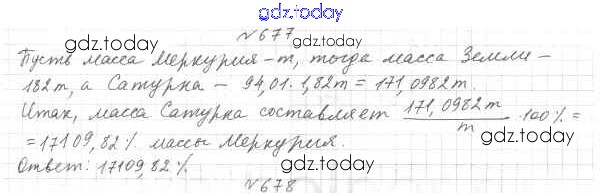 gdz.today
№677
gdz.today gdz.today
Пусть масса Меркурия - m, тогда масса Земли -
182m, а Сатурна - 94,01 · 1,82m = 171,0982m.
Итак, масса Сатурна составляет 171,0982m / m · 100% =
gdz.today
= 17109,82% массы Меркурия.
gdz.today
Ответ: 17109,82%
gdz.today
№678